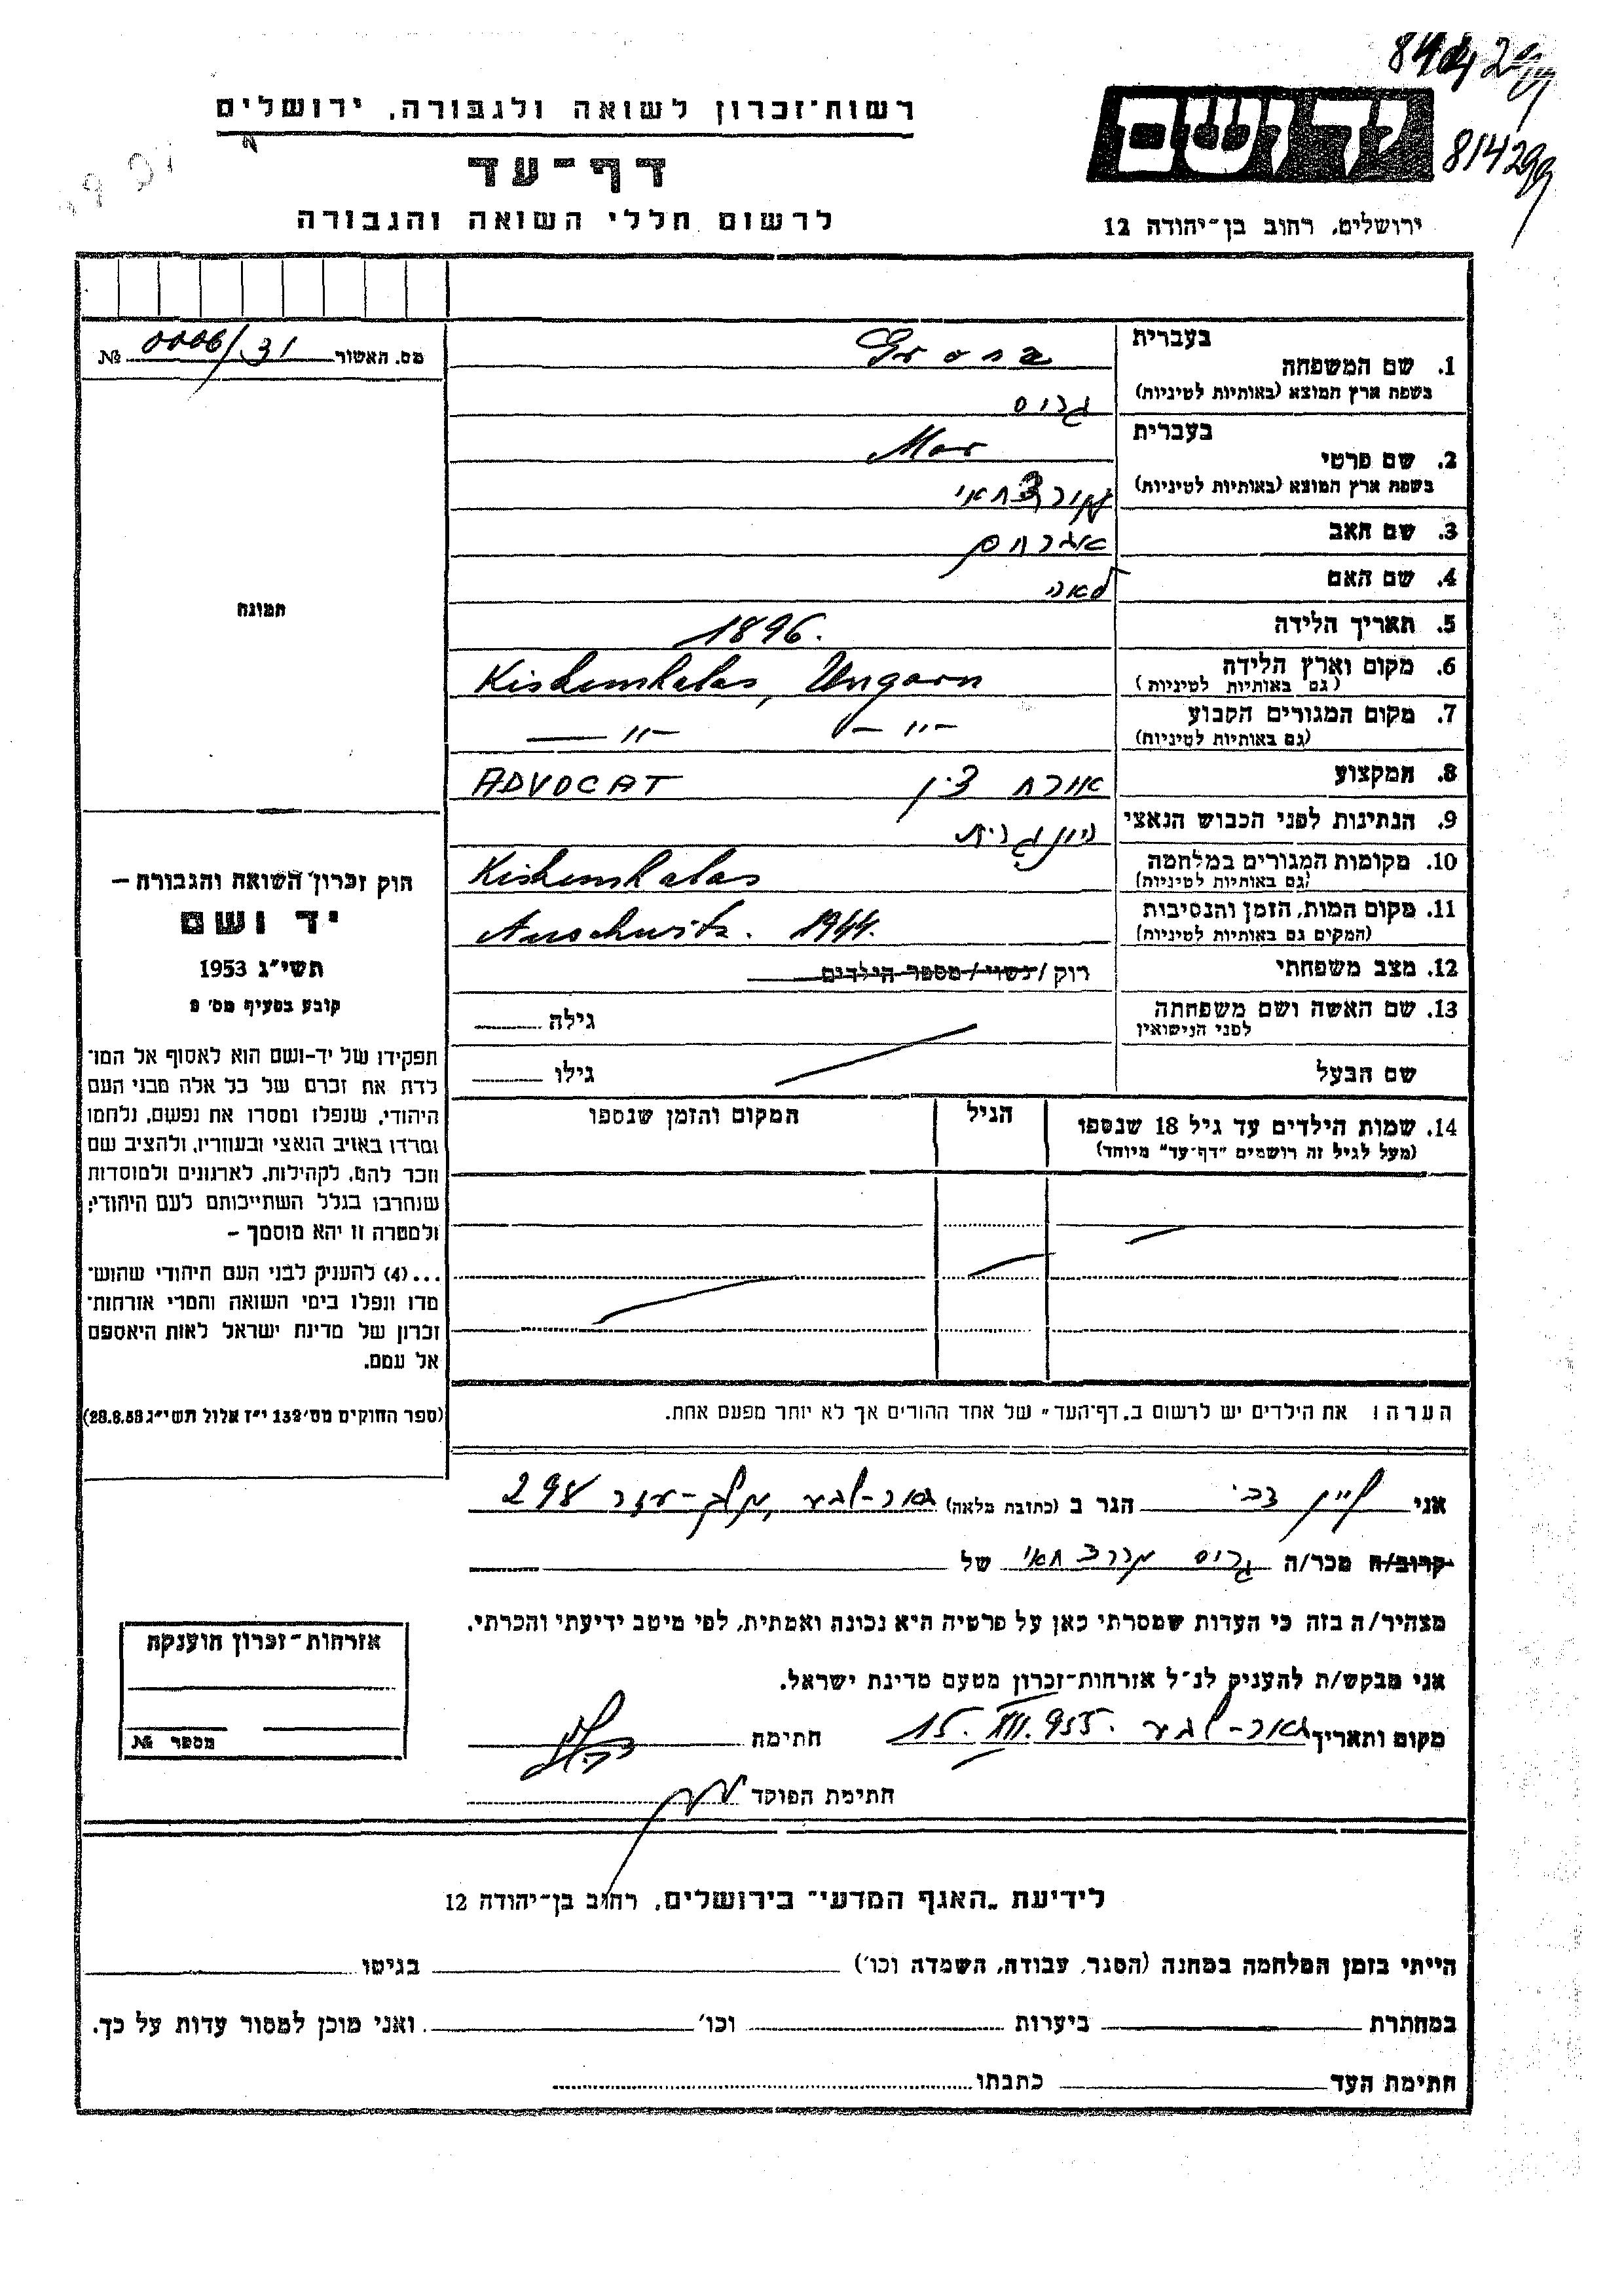 814299
רשות־זכרון לשואה ולגבורה, ירושלים
יד ושם
814299
דף־עד
לרשום חללי השואה והגבורה
ירושלים, רחוב בן־יהודה 12
מס. האשור 0006/31 №
בעברית
1. שם המשפחה
Gross
(בשפת ארץ המוצא (באותיות לטיניות
גרוס
בעברית
2. שם פרטי
Mor
(בשפת ארץ המוצא (באותיות לטיניות
3. שם האב אברהם
4. שם האם לאה
תמונה
5. תאריך הלידה 1896.
6. מקום וארץ הלידה
(גם באותיות לטיניות)
Kiskunhalas, Ungarn
7. מקום המגורים הקבוע
(גם באותיות לטיניות)
— " — — " —
8. המקצוע עורך דין ADVOCAT
9. הנתינות לפני הכבוש הנאצי הונגרית
10. מקומות המגורים במלחמה
(גם באותיות לטיניות)
Kiskunhalas
11. מקום המות, הזמן והנסיבות
(המקום גם באותיות לטיניות)
Auschwitz. 1944.
12. מצב משפחתי רוק / נשוי / מספר הילדים
13. שם האשה ושם משפחתה
לפני הנישואין
גילה
שם הבעל גילו
14. שמות הילדים עד גיל 18 שנספו
(מעל לגיל זה רושמים "דף־עד" מיוחד)
הגיל
המקום והזמן שנספו
חוק זכרון השואה והגבורה –
יד ושם
תשי"ג 1953
קובע בסעיף מס' 2
תפקידו של יד-ושם הוא לאסוף אל המו־
לדת את זכרם של כל אלה מבני העם
היהודי, שנפלו ומסרו את נפשם, נלחמו
ומרדו באויב הנאצי ובעוזריו, ולהציב שם
וזכר להם, לקהילות, לארגונים ולמוסדות
שנחרבו בגלל השתייכותם לעם היהודי;
ולמטרה זו יהא מוסמך –
...(4) להעניק לבני העם היהודי שהוש־
מדו ונפלו בימי השואה והמרי אזרחות־
זכרון של מדינת ישראל לאות היאספם
אל עמם.
(ספר החוקים מס' 132 י"ז אלול תשי"ג 28.8.53)
הערה: את הילדים יש לרשום ב„דף־העד" של אחד ההורים אך לא יותר מפעם אחת.
אני הגר ב (כתובת מלאה) באר-שבע 298
קרוב/ה מכר/ה גרוס של
מצהיר/ה בזה כי העדות שמסרתי כאן על פרטיה היא נכונה ואמתית, לפי מיטב ידיעתי והכרתי.
אני מבקש/ת להעניק לנ"ל אזרחות־זכרון מטעם מדינת ישראל.
מקום ותאריך באר-שבע 15. 955. חתימה
חתימת הפוקד
אזרחות־זכרון הוענקה
מספר №
לידיעת „האגף המדעי" בירושלים, רחוב בן־יהודה 12
הייתי בזמן המלחמה במחנה (הסגר, עבודה, השמדה וכו') בגיטו
במחתרת ביערות וכו' ואני מוכן למסור עדות על כך.
חתימת העד כתבתו